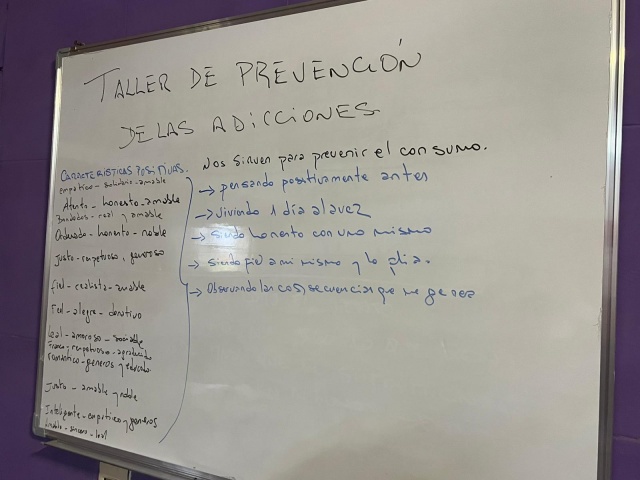 TALLER DE PREVENCIÓN
DE LAS ADICCIONES
CARACTERISTICAS POSITIVAS.
empatico - solidario - amable
Atento - honesto - amable
Bondadoso - real y amable
Ordenado - honesto - noble
Justo - respetuoso, generoso
fiel - realista - amable
Fiel - alegre - donativo
Leal - amoroso - sociable
Franco - respetuoso - agradecido
romántico - generoso y educado
Justo - amable y noble
Inteligente - empático y generoso
- sincero - leal
Nos sirven para prevenir el consumo.
→ pensando positivamente antes
→ viviendo 1 día a la vez
→ siendo honesto con uno mismo
→ siendo fiel a mi mismo y lo
→ Observando las consecuencias que me genera